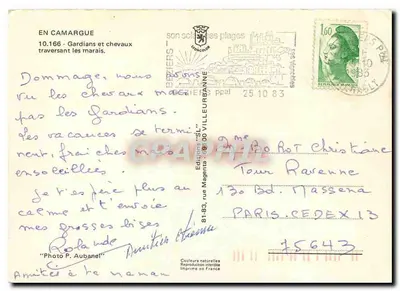 EN CAMARGUE
10.166 - Gardians et chevaux
traversant les marais.
Dommage, nous avons
vu les chevaux mais
pas les Gardians.
Les vacances se termi
nent, fraiches mais
ensoleillées.
Je t'espère plus au
calme et t'envoie
mes grosses bises
Rolande
"Photo P. Aubanel"
Amitiés à ta maman
Editions "SL"
81-83, rue Magenta - 69100 VILLEURBANNE
son soleil ses plages
BEZIERS ppal
25 10 83
1,60
Couleurs naturelles
Reproduction interdite
Imprimé en France
Mme Christiane
Tour Ravenne
130 Bd. Massena
PARIS. CEDEX 13
75643